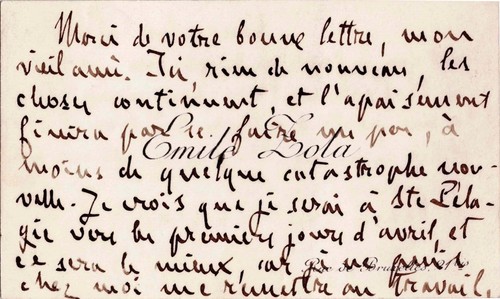 Merci de votre bonne lettre, mon
vieil ami. Ici, rien de nouveau, les
choses continuent, et l'apaisement
finira par se faire un peu, à
Emile Zola
moins de quelque catastrophe nou-
velle. Je crois que je serai à Ste Péla-
gie vers les premiers jours d'avril, et
ce sera le mieux, car je ne puis
Rue de Bruxelles, 21 b
chez moi me remettre au travail.